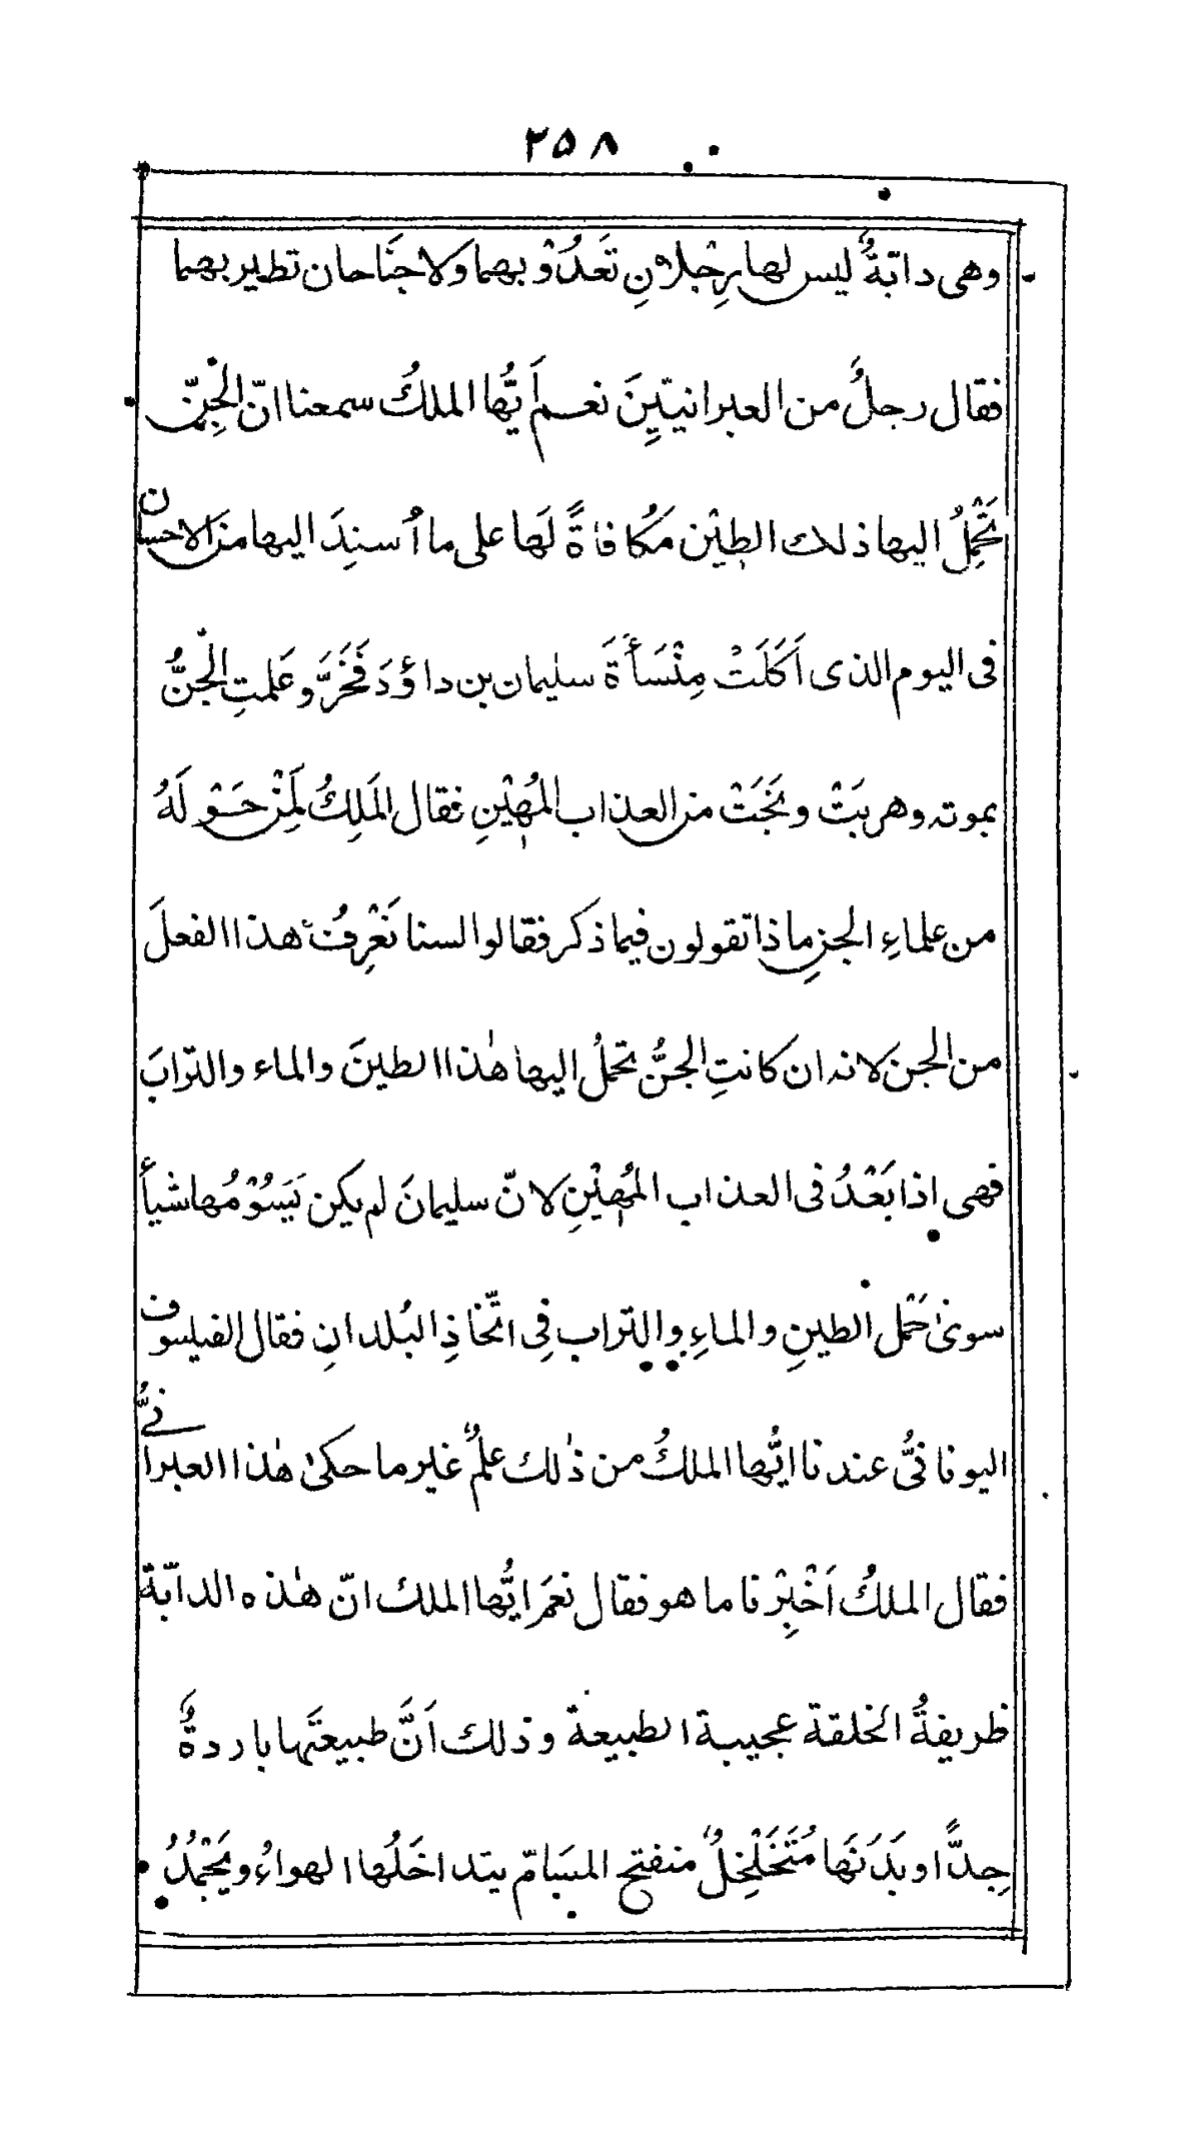 ٢٥٨
وهى دابّةٌ ليس لها رِجْلانِ تَعَدُوْ بهما ولا جنَاحان تطير بهما
فقال رجلٌ من العبرانيّيِنَ نعم أَيُّها الملكُ سمعنا انّ الْجِنّ
تَحْمِلُ اليها ذلك الطيْن مَكُافاةً لَها على ما أُسنِدَ اليها من الاحسان
فى اليوم الذى اَكَلَتْ مِنْسَأَةَ سليمان بن داؤدَ فَخَرَّ وعَلمتِ الْجنُّ
بموته وهربَتْ ونَجَتْ من العذاب المُهِيْنِ فقال المَلِكُ لِمَنْ حَوْلَهُ
من علماءِ الجنِ ماذا تقولون فيما ذكر فقالوا لسنا نَعْرِفُ هذا الفعلَ
من الجنَ لانه ان كانتِ الجنُّ تحملُ اليها هٰذا الطينَ والماء والترابَ
فهى اذا بَعْدُ فى العذاب المُهِيْنِ لانّ سليمانَ لم يكن يَسُوْمُها شيأً
سوىٰ حَمْل الطينِ والماءِ والتراب فِى اتّخاذِ البُلدانِ فقال الفيلسوف
اليونانىُّ عندنا ايُّها الملكُ من ذٰلك علمٌ غير ما حكىٰ هٰذا العبرانىُّ
فقال الملكُ اَخْبِرْنا ما هو فقال نعَم ايُّها الملك انّ هٰذه الدابّة
ظريفةُ الخلقة عجيبة الطبيعة وذلك اَنَّ طبيعتَها باردةٌ
جِدًّا وبَدَنَها مُتَخَلْخِلٌ منفتح المسَامّ يتداخَلُها الهواءُ ويَجْمُدُ